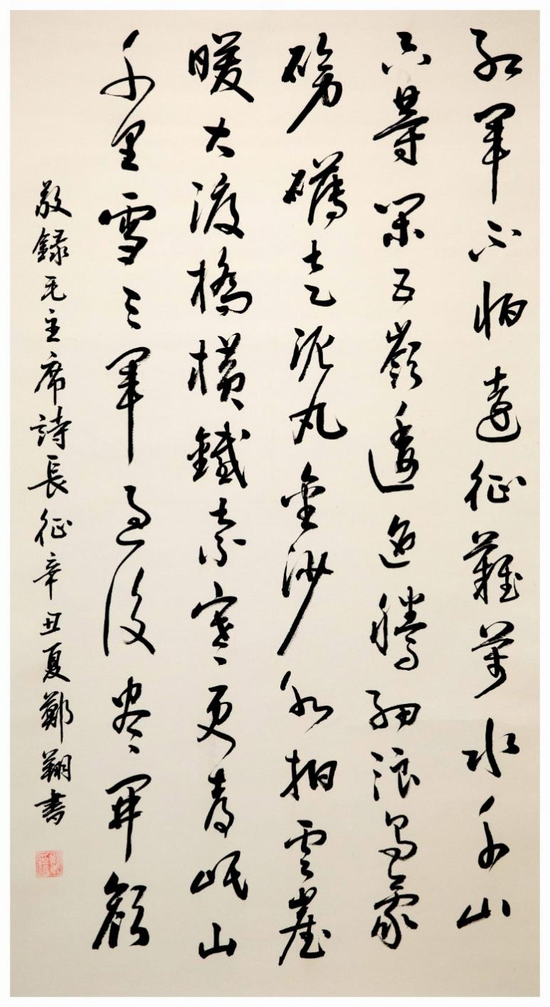 紅軍不怕遠征難萬水千山
只等閑五嶺逶迤騰細浪烏蒙
磅礴走泥丸金沙水拍云崖
暖大渡橋橫鐵索寒更喜岷山
千里雪三軍過後盡開顏
敬錄毛主席詩長征辛丑夏鄭翔書